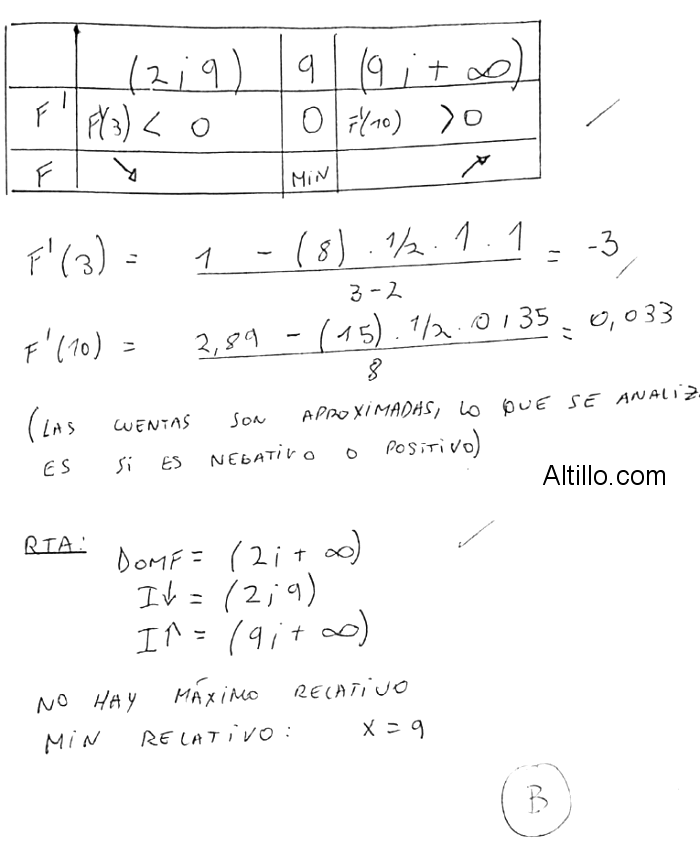 (2; 9) 9 (9; + ∞)
F' F'(3) < 0 0 F'(10) > 0
F ↘ MIN ↗
F'(3) = 1 - (8) . 1/2 . 1 . 1 / 3-2 = -3
F'(10) = 2,89 - (15) . 1/2 . 0,35 / 8 = 0,033
(LAS CUENTAS SON APROXIMADAS, LO QUE SE ANALIZ
ES SI ES NEGATIVO O POSITIVO)
Altillo.com
RTA: DOMF = (2; + ∞)
I↓ = (2; 9)
I↑ = (9; + ∞)
NO HAY MÁXIMO RELATIVO
MIN RELATIVO: X = 9
B